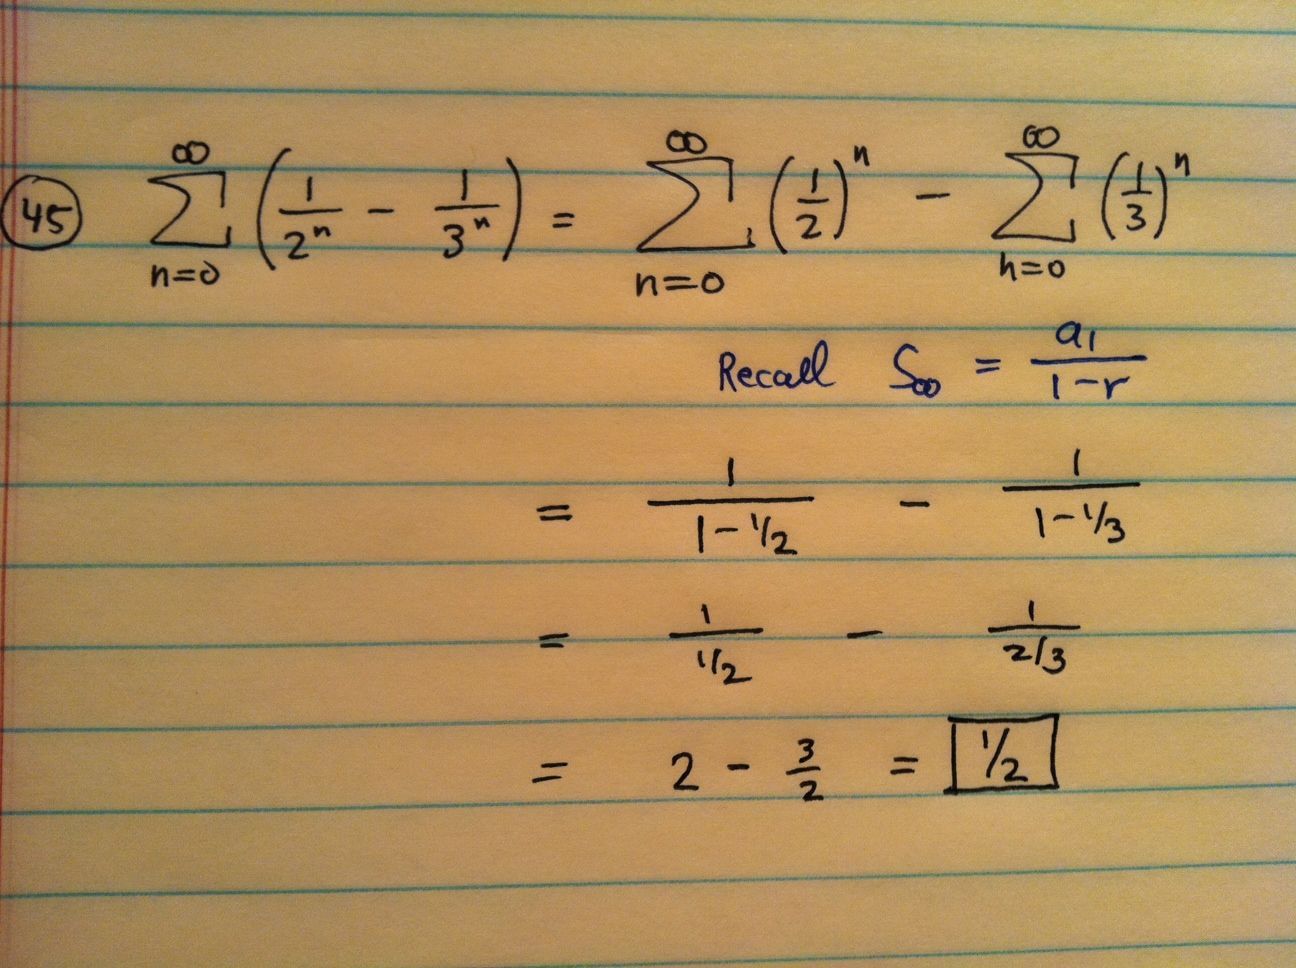 45 ∞∑n=0 (1/2ⁿ − 1/3ⁿ) = ∞∑n=0 (1/2)ⁿ − ∞∑n=0 (1/3)ⁿ
Recall S∞ = a₁/(1−r)
= 1/(1−1/2) − 1/(1−1/3)
= 1/(1/2) − 1/(2/3)
= 2 − 3/2 = 1/2